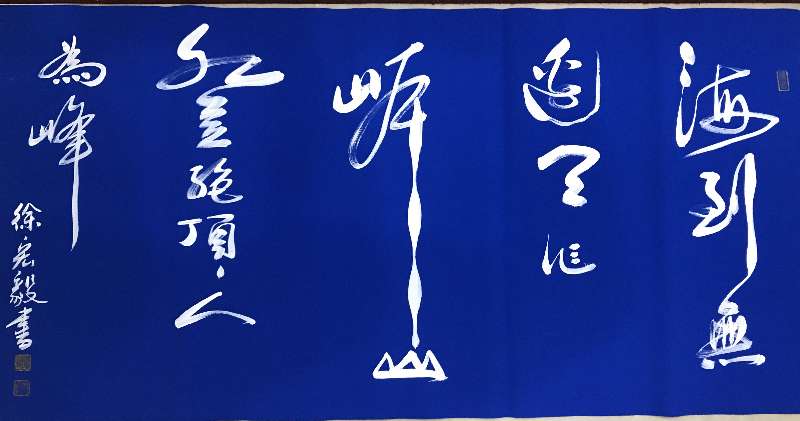 海到無
邊天作
岸山
登絕頂人
為峰
徐宏毅書